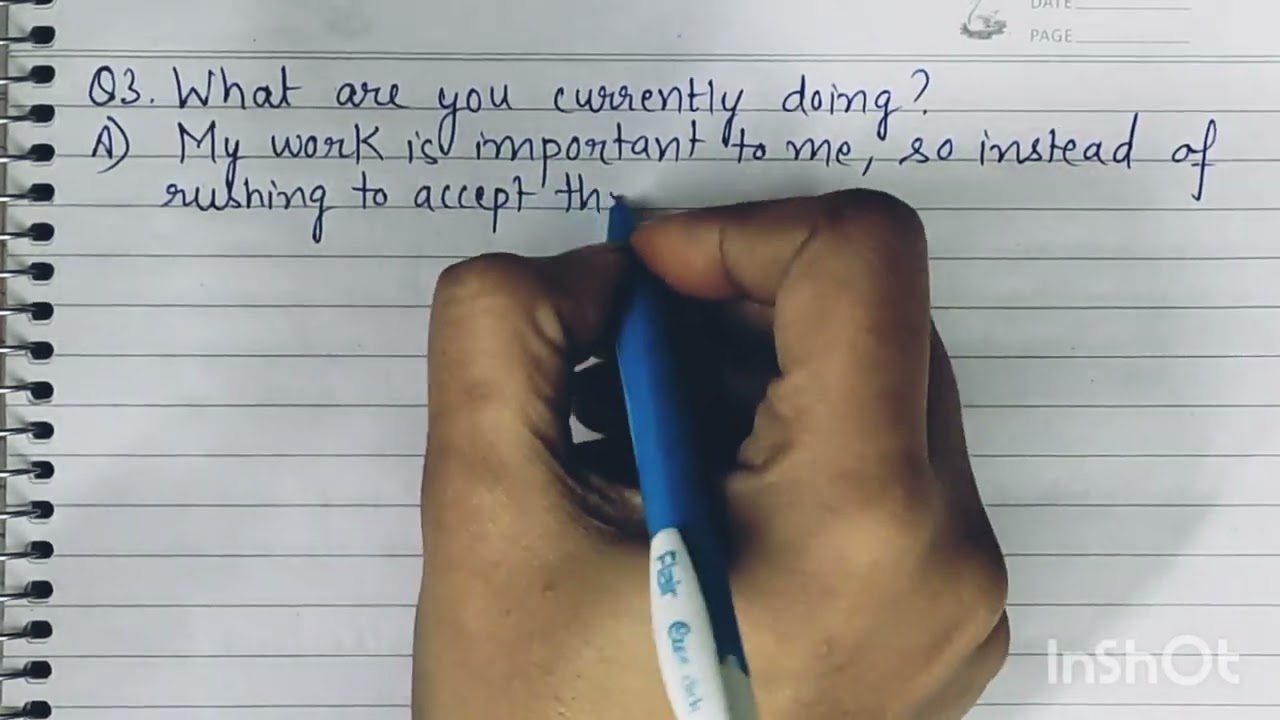 DATE
PAGE
Q3. What are you currently doing?
A) My work is important to me, so instead of
rushing to accept th
Flair
InShOt